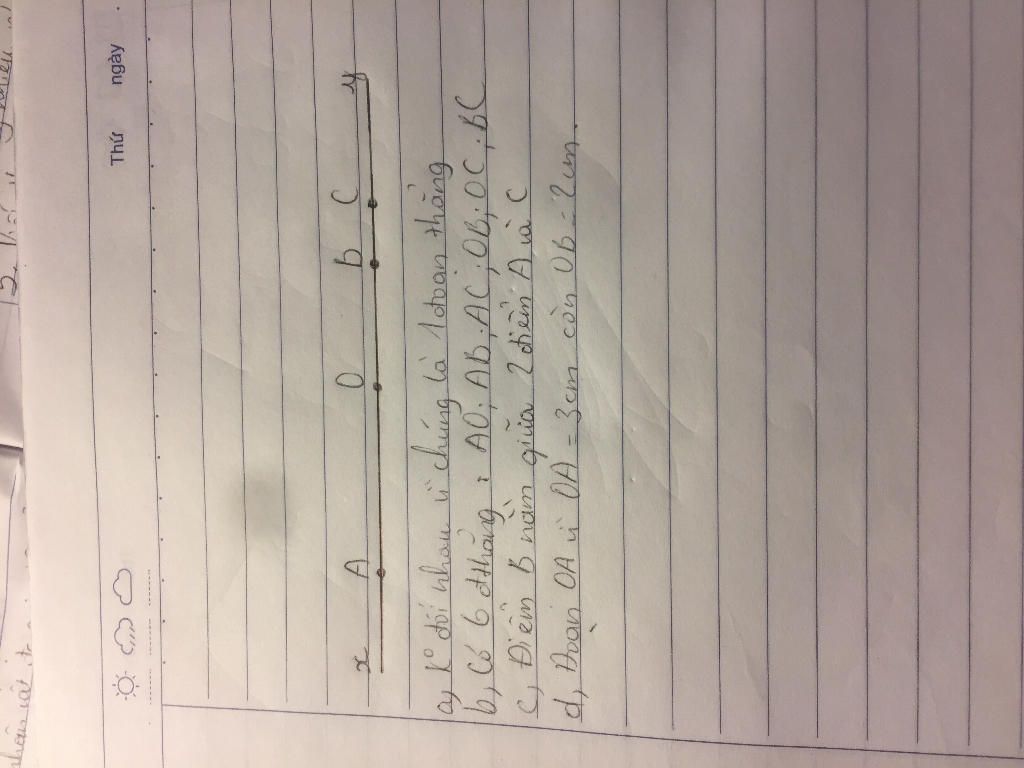 Thứ ngày
x A O B C y
a, K° đối nhau vì chúng là 1 đoạn thẳng
b, Có 6 đthẳng : AO, AB, AC, OB, OC, BC
c, Điểm B nằm giữa 2 điểm A và C
d, Đoạn OA vì OA = 3cm còn OB = 2cm.